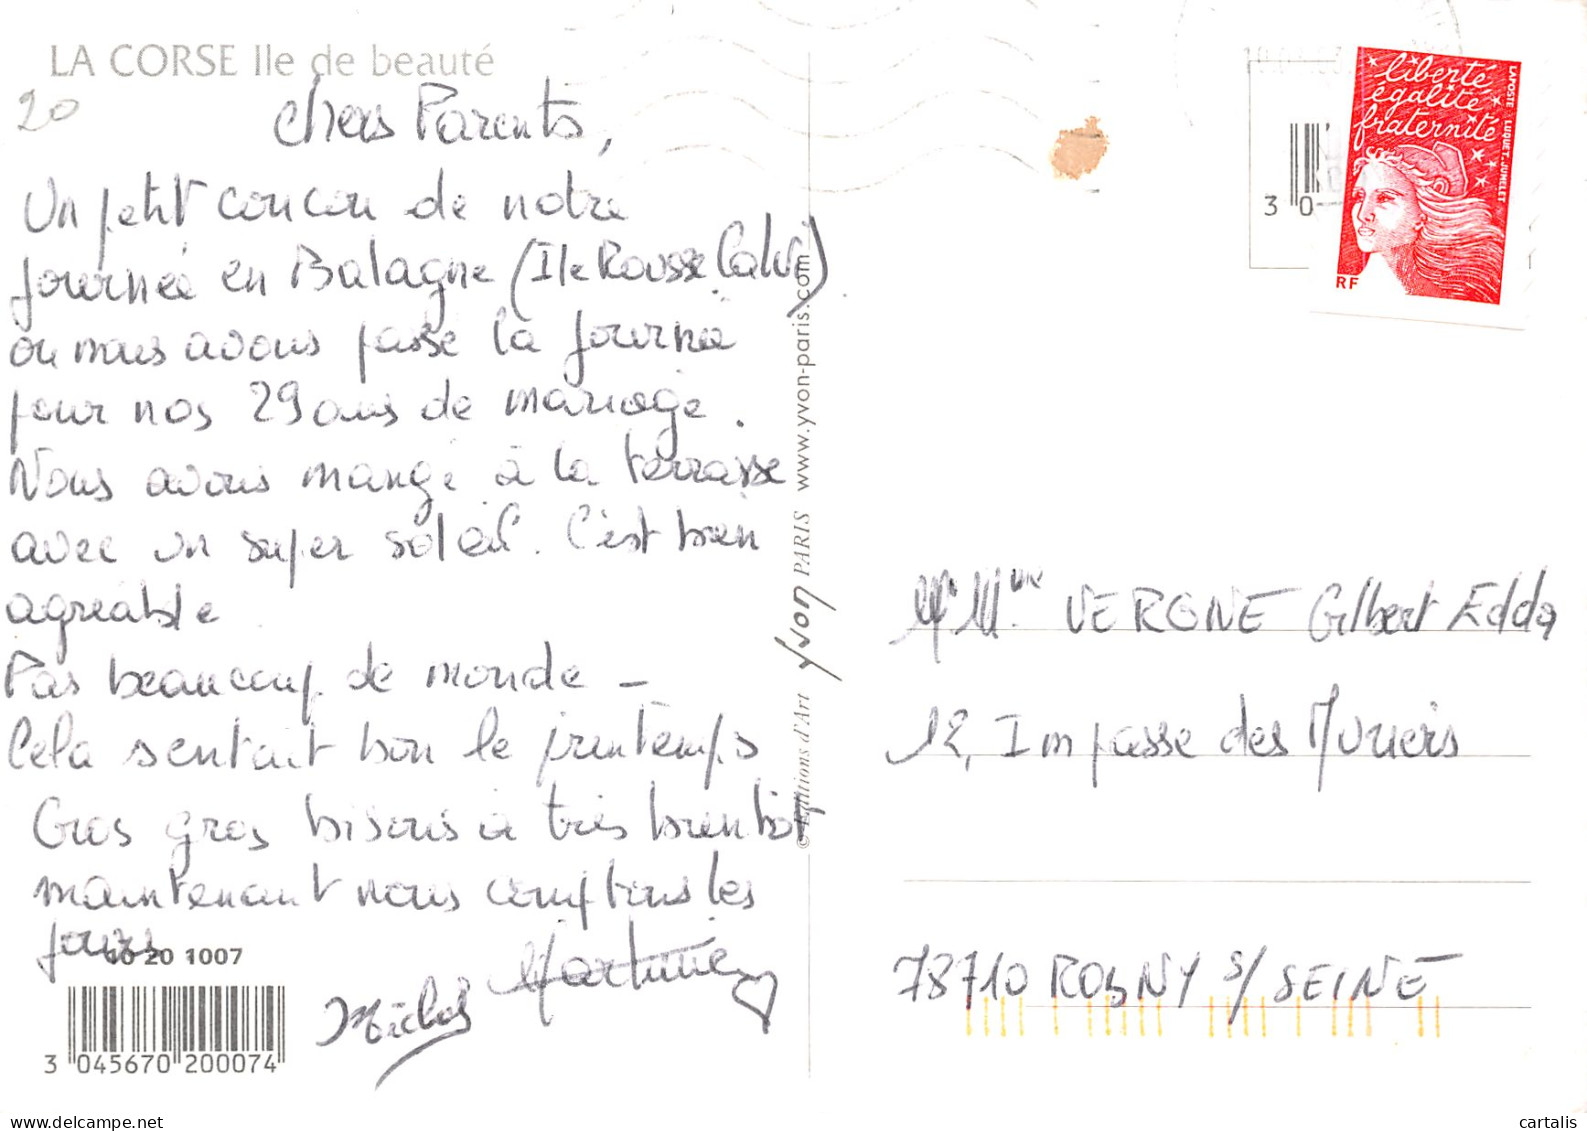 LA CORSE Ile de beauté
20
Chers Parents,
Un petit coucou de notre
journée en Balagne (Ile Rousse Calvi)
ou nous avons passé la journée
pour nos 29 ans de mariage.
Nous avons mangé à la terrasse
avec un super soleil. C'est bien
agréable.
Pas beaucoup de monde –
Cela sentait bon le printemps
Gros gros bisous à très bientôt
maintenant nous comptons les
jours
Martine
Michel
10 20 1007
3 045670 200074
© Editions d'Art Yvon PARIS www.yvon-paris.com
30
liberté
égalité
fraternité
RF
LAPOSTE LUQUET.JUMELET
VERGNE Gilbert Edda
12, Impasse des Muriers
78710 ROSNY s/ SEINE
delcampe.net
cartalis